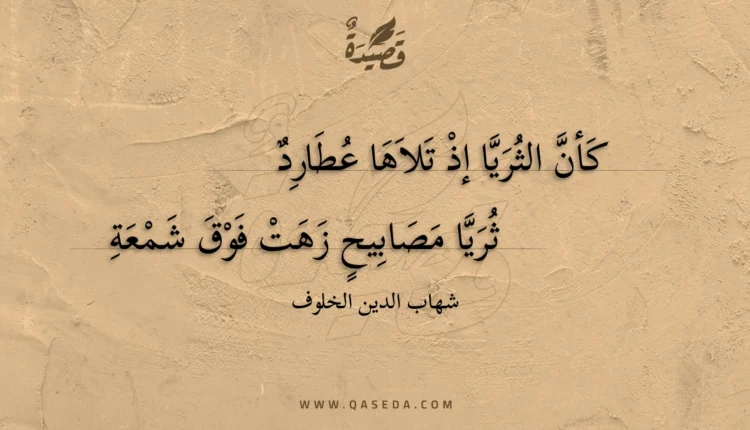 قَصِيدَةٌ
كَأنَّ الثُرَيَّا إذْ تَلاَهَا عُطَارِدٌ
ثُرَيَّا مَصَابِيحٍ زَهَتْ فَوْقَ شَمْعَةِ
شهاب الدين الخلوف
WWW.QASEDA.COM